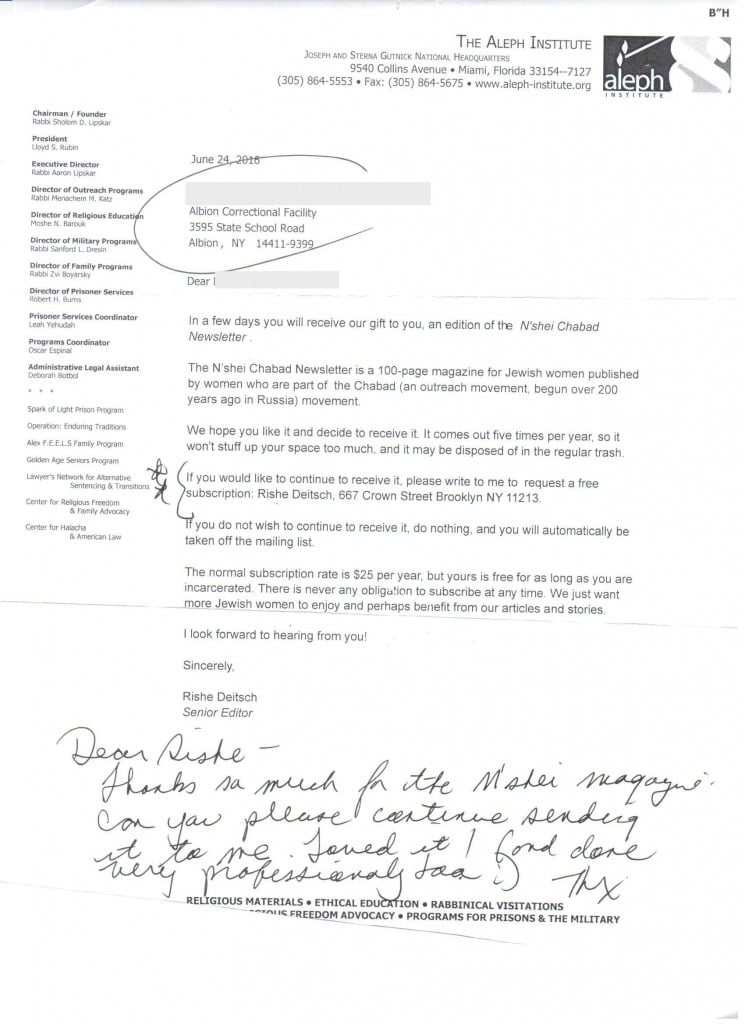 B"H
THE ALEPH INSTITUTE
JOSEPH AND STERNA GUTNICK NATIONAL HEADQUARTERS
9540 Collins Avenue • Miami, Florida 33154--7127
(305) 864-5553 • Fax: (305) 864-5675 • www.aleph-institute.org
aleph
INSTITUTE
Chairman / Founder
Rabbi Sholom D. Lipskar
President
Lloyd S. Rubin
Executive Director
Rabbi Aaron Lipskar
Director of Outreach Programs
Rabbi Menachem M. Katz
Director of Religious Education
Moshe N. Barouk
Director of Military Programs
Rabbi Sanford L. Dresin
Director of Family Programs
Rabbi Zvi Boyarsky
Director of Prisoner Services
Robert H. Burns
Prisoner Services Coordinator
Leah Yehudah
Programs Coordinator
Oscar Espinal
Administrative Legal Assistant
Deborah Botbol
* * *
Spark of Light Prison Program
Operation: Enduring Traditions
Alex F.E.E.L.S Family Program
Golden Age Seniors Program
Lawyer's Network for Alternative
Sentencing & Transitions
Center for Religious Freedom
& Family Advocacy
Center for Halacha
& American Law
June 24, 2016
Albion Correctional Facility
3595 State School Road
Albion, NY 14411-9399
Dear
In a few days you will receive our gift to you, an edition of the N'shei Chabad
Newsletter .
The N'shei Chabad Newsletter is a 100-page magazine for Jewish women published
by women who are part of the Chabad (an outreach movement, begun over 200
years ago in Russia) movement.
We hope you like it and decide to receive it. It comes out five times per year, so it
won't stuff up your space too much, and it may be disposed of in the regular trash.
If you would like to continue to receive it, please write to me to request a free
subscription: Rishe Deitsch, 667 Crown Street Brooklyn NY 11213.
If you do not wish to continue to receive it, do nothing, and you will automatically be
taken off the mailing list.
The normal subscription rate is $25 per year, but yours is free for as long as you are
incarcerated. There is never any obligation to subscribe at any time. We just want
more Jewish women to enjoy and perhaps benefit from our articles and stories.
I look forward to hearing from you!
Sincerely,
Rishe Deitsch
Senior Editor
Dear Rishe –
Thanks so much for the N'shei magazine.
Can you please continue sending
it to me. Loved it! done
very professionaly too :) Thx
RELIGIOUS MATERIALS • ETHICAL EDUCATION • RABBINICAL VISITATIONS
FREEDOM ADVOCACY • PROGRAMS FOR PRISONS & THE MILITARY